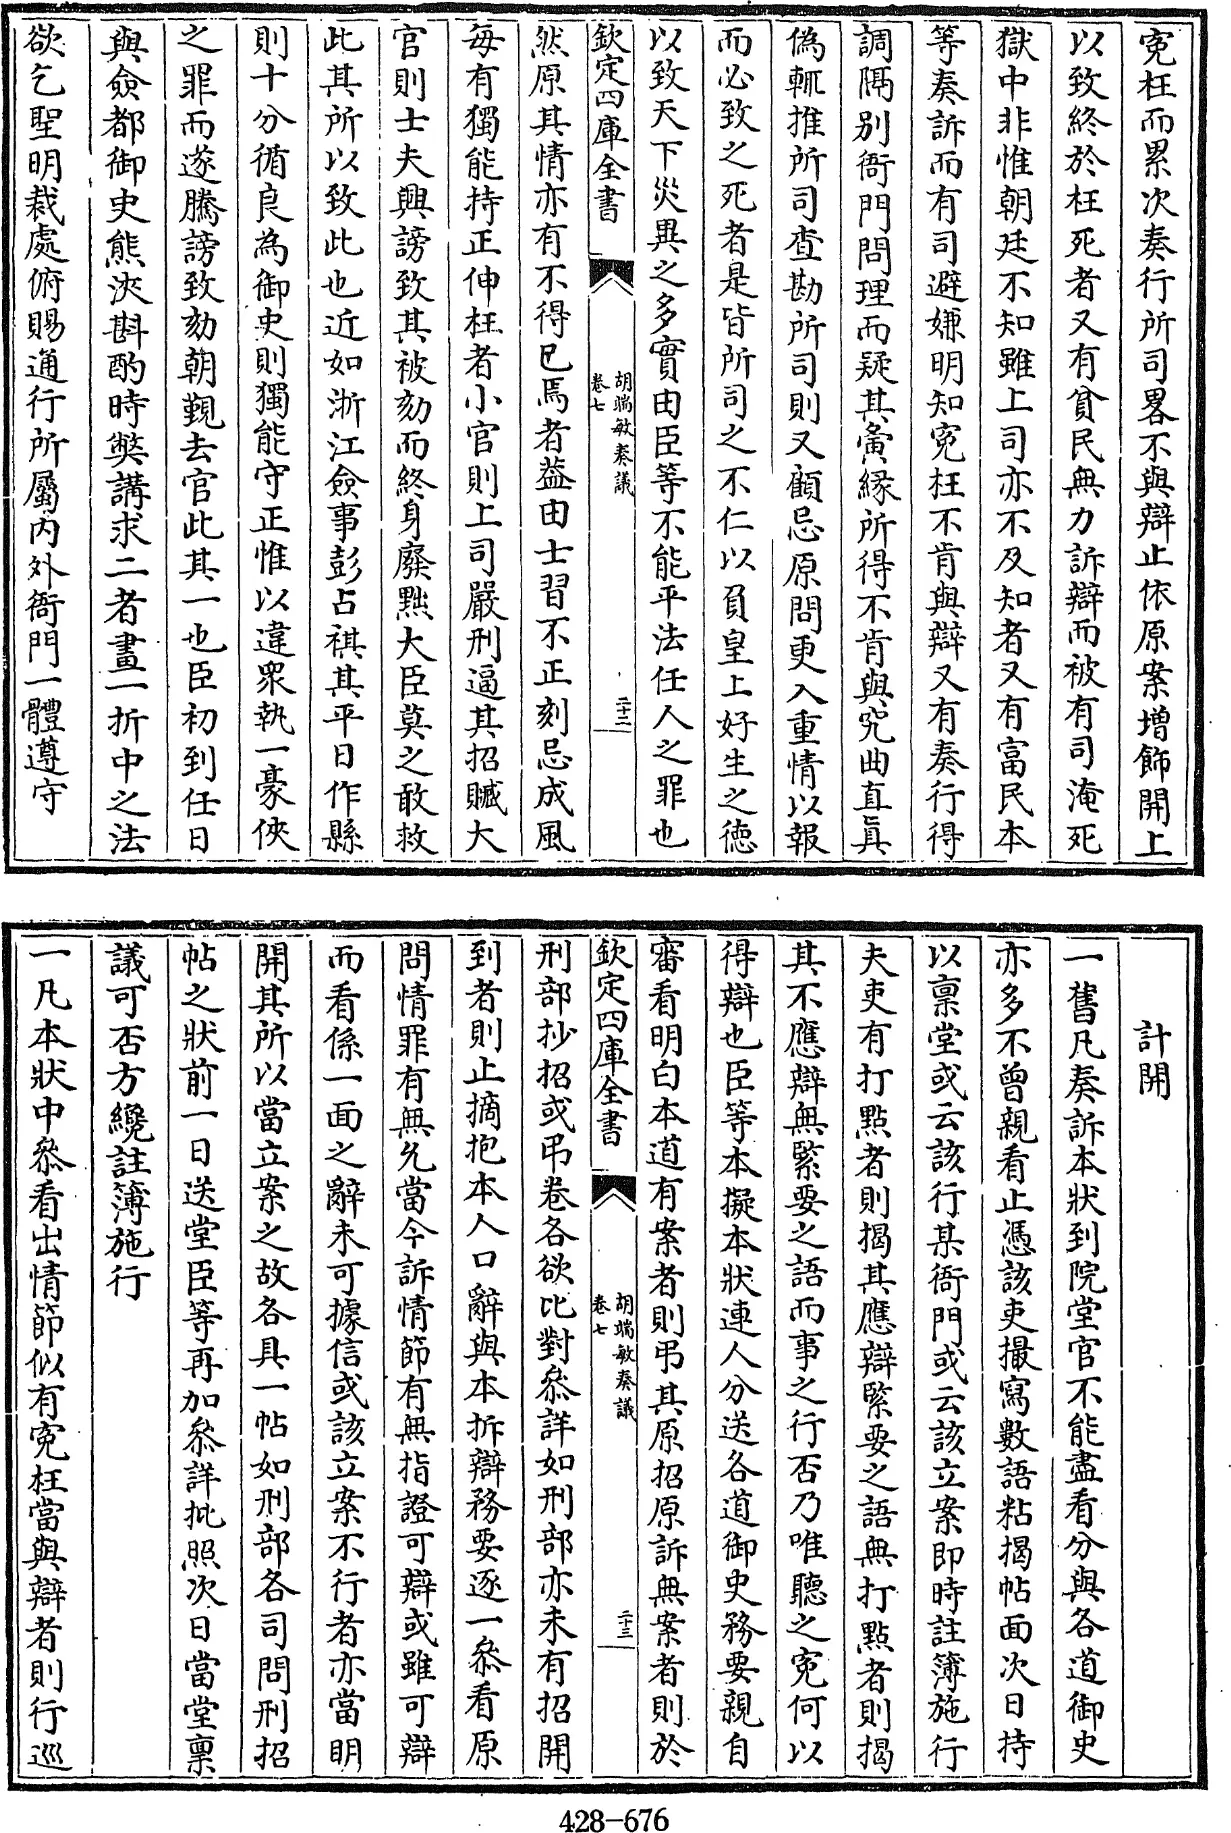 寃枉而累次奏行所司畧不與辯止依原案増飾開上
以致終於枉死者又有貧民無力訴辯而被有司淹死
獄中非惟朝廷不知雖上司亦不及知者又有富民本
等奏訴而有司避嫌明知寃枉不肯與辯又有奏行得
調隔别衙門問理而疑其夤緣所得不肯與究曲直真
偽輒推所司查勘所司則又顧忌原問更入重情以報
而必致之死者是皆所司之不仁以負皇上好生之徳
以致天下災異之多實由臣等不能平法任人之罪也
欽定四庫全書
胡端敏奏議
卷七
二十二
然原其情亦有不得已焉者葢由士習不正刻忌成風
每有獨能持正伸枉者小官則上司嚴刑逼其招贓大
官則士夫興謗致其被劾而終身廢黜大臣莫之敢救
此其所以致此也近如浙江僉事彭占祺其平日作縣
則十分循良為御史則獨能守正惟以違衆執一豪俠
之罪而遂騰謗致劾朝覲去官此其一也臣初到任日
與僉都御史熊浹斟酌時獘講求二者畫一折中之法
欲乞聖明裁處俯賜通行所屬内外衙門一體遵守
計開
一舊凡奏訴本狀到院堂官不能盡看分與各道御史
亦多不曾親看止憑該吏撮寫數語粘揭帖面次日持
以禀堂或云該行某衙門或云該立案即時註簿施行
夫吏有打點者則揭其應辯緊要之語無打點者則揭
其不應辯無緊要之語而事之行否乃唯聽之寃何以
得辯也臣等本擬本狀連人分送各道御史務要親自
審看明白本道有案者則弔其原招原訴無案者則於
欽定四庫全書
胡端敏奏議
卷七
二十三
刑部抄招或弔卷各欲比對叅詳如刑部亦未有招開
到者則止摘抱本人口辭與本拆辯務要逐一叅看原
問情罪有無允當今訴情節有無指證可辯或雖可辯
而看係一面之辭未可據信或該立案不行者亦當明
開其所以當立案之故各具一帖如刑部各司問刑招
帖之狀前一日送堂臣等再加叅詳批照次日當堂禀
議可否方纔註簿施行
一凡本狀中叅看出情節似有寃枉當與辯者則行巡
428-676